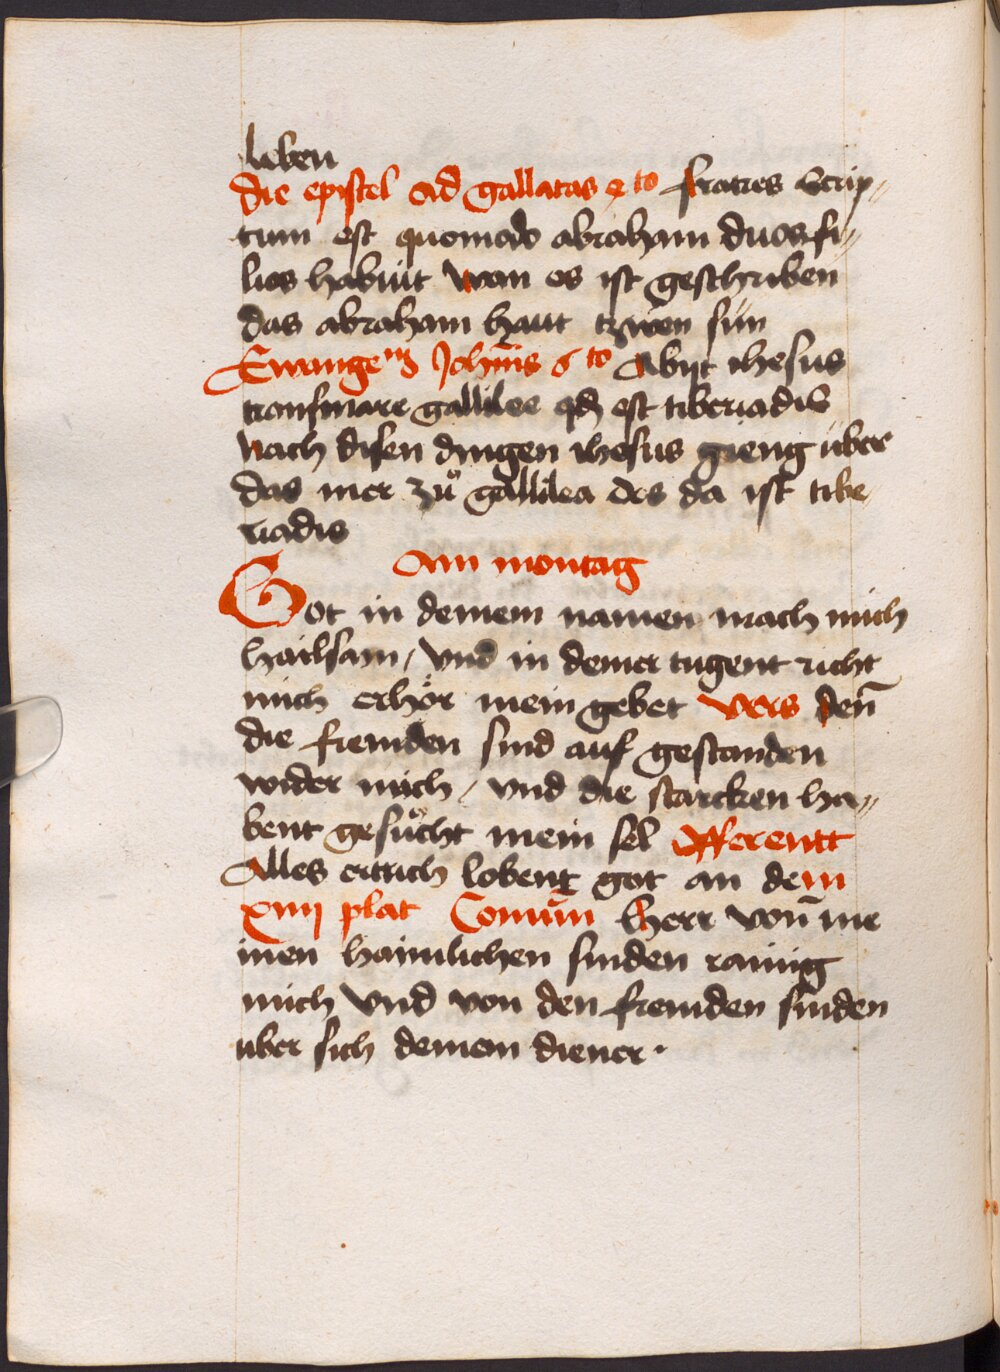 leben
die epistel ad gallatas 4 to fratres Scrip〃
tum est quomodo abraham duos fi〃
lios habuit wan es ist geschriben
das abraham haut tzwen sün
Ewangeᵐ Joh̄is 6 to Abijt ihesus
transmare gallilee qd̄ est tiberiadis
nach disen dingen ihesus gieng über
das mer zuͦ gallilea des da ist tibe
riadis
Am montag
Got in deinem namen mach mich
hailsam / vnd in deiner tugent richt
mich erhör mein gebet vers den̄
die fremden sind auf gestanden
wider mich / vnd die starcken ha〃
bent gesuͦcht mein sel Offerentt
Alles ertrich lobent got an dem
xiiij plat Comūn Herr von̄ me
inen haimlichen sunden rainig
mich vnd von den fremden sunden
uber sich deinem diener ·